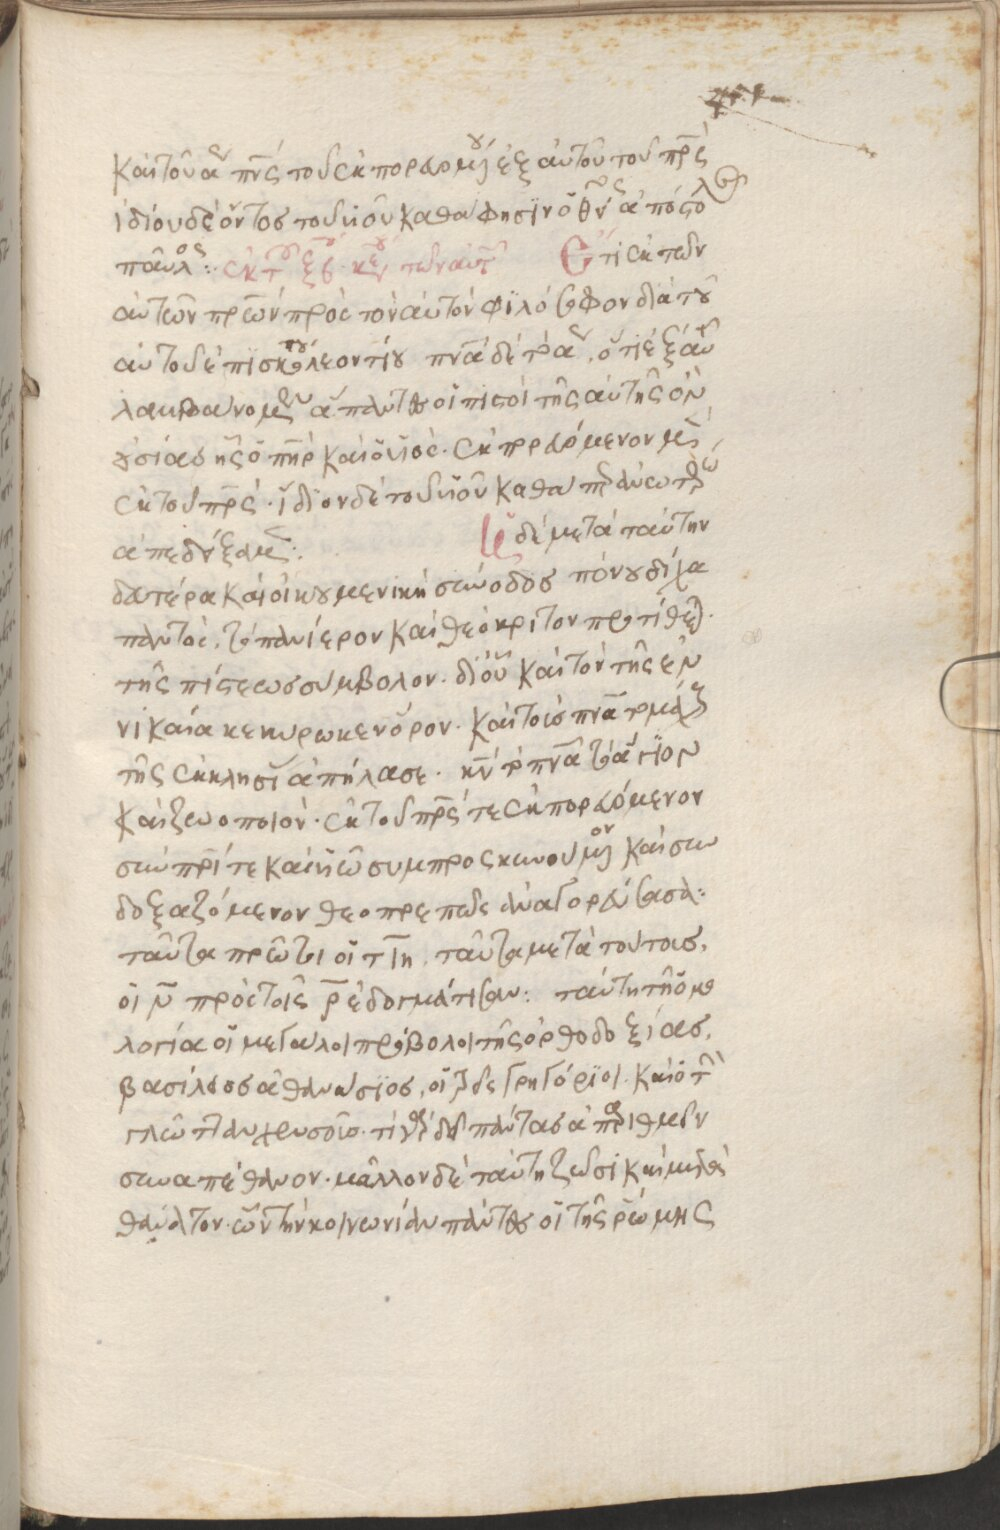 καὶ τοῦ ἁγ πνς τοῦ ἐκπορευομένου ἐξ αὐτοῦ τοῦ πρς
ἰδίου δὲ ὄντος τοῦ υἱοῦ καθά φησιν ὁ θεῖος ἀπόστολος
παῦλος: ἐκ τοῦ κεφ τῶν αὐτῶν Ἔτι ἐκ τῶν
αὐτῶν πρων πρὸς τὸν αὐτὸν φιλόσοφον διὰ τοῦ
αὐτοῦ ἐπισκόπου λεοντίου πνα δὲ τὸ ἅγ, ὅτι ἐξ αὐτοῦ
λαμβάνομεν ἅπαντες οἱ πιστοὶ τῆς αὐτῆς ὂν
οὐσίας ἧς ὁ πηρ καὶ ὁ υἱός· ἐκπορευόμενον μὲν
ἐκ τοῦ πρς· ἴδιον δὲ τοῦ υἱοῦ καθάπερ ἀνωτέρω
ἀπεδείξαμεν: Ἡ δὲ μετὰ ταύτην
δευτέρα καὶ οἰκουμενικὴ σύνοδος πόνου δίχα
παντός, τὸ πανίερον καὶ θεόκριτον προτίθεται
τῆς πίστεως σύμβολον· δι οὗ καὶ τὸν τῆς ἐν
νικαία κεκύρωκεν ὅρον· καὶ τοὺς πνατομάχους
τῆς ἐκκλησίας ἀπήλασε· καὶ τὸ πνα τὸ ἅγιον
καὶ ζωοποιόν· ἐκ τοῦ πρς τε ἐκπορευόμενον
σὺν πρι τε καὶ υἱῷ συμπροσκυνούμενον καὶ συν
δοξαζόμενον θεοπρεπῶς ἀναγορεύσασα:
ταῦτα πρῶτοι οἱ τιη, ταῦτα μετὰ τούτους,
οἱ ν πρὸς τοῖς ρ ἐδογμάτισαν: ταύτη τῆ ὁμο
λογία οἱ μεγάλοι πρόβολοι τῆς ὀρθοδοξίας,
βασίλειος ἀθανάσιος, οἱ γρηγόριοι· καὶ ὁ τὴν
πάντας ἀπαριθμεῖν
συναπέθανον· μᾶλλον δὲ ταύτη ζῶσι
θάνατον· ὧν τὴν κοινωνίαν πάντες οἱ τῆς ῥώμης